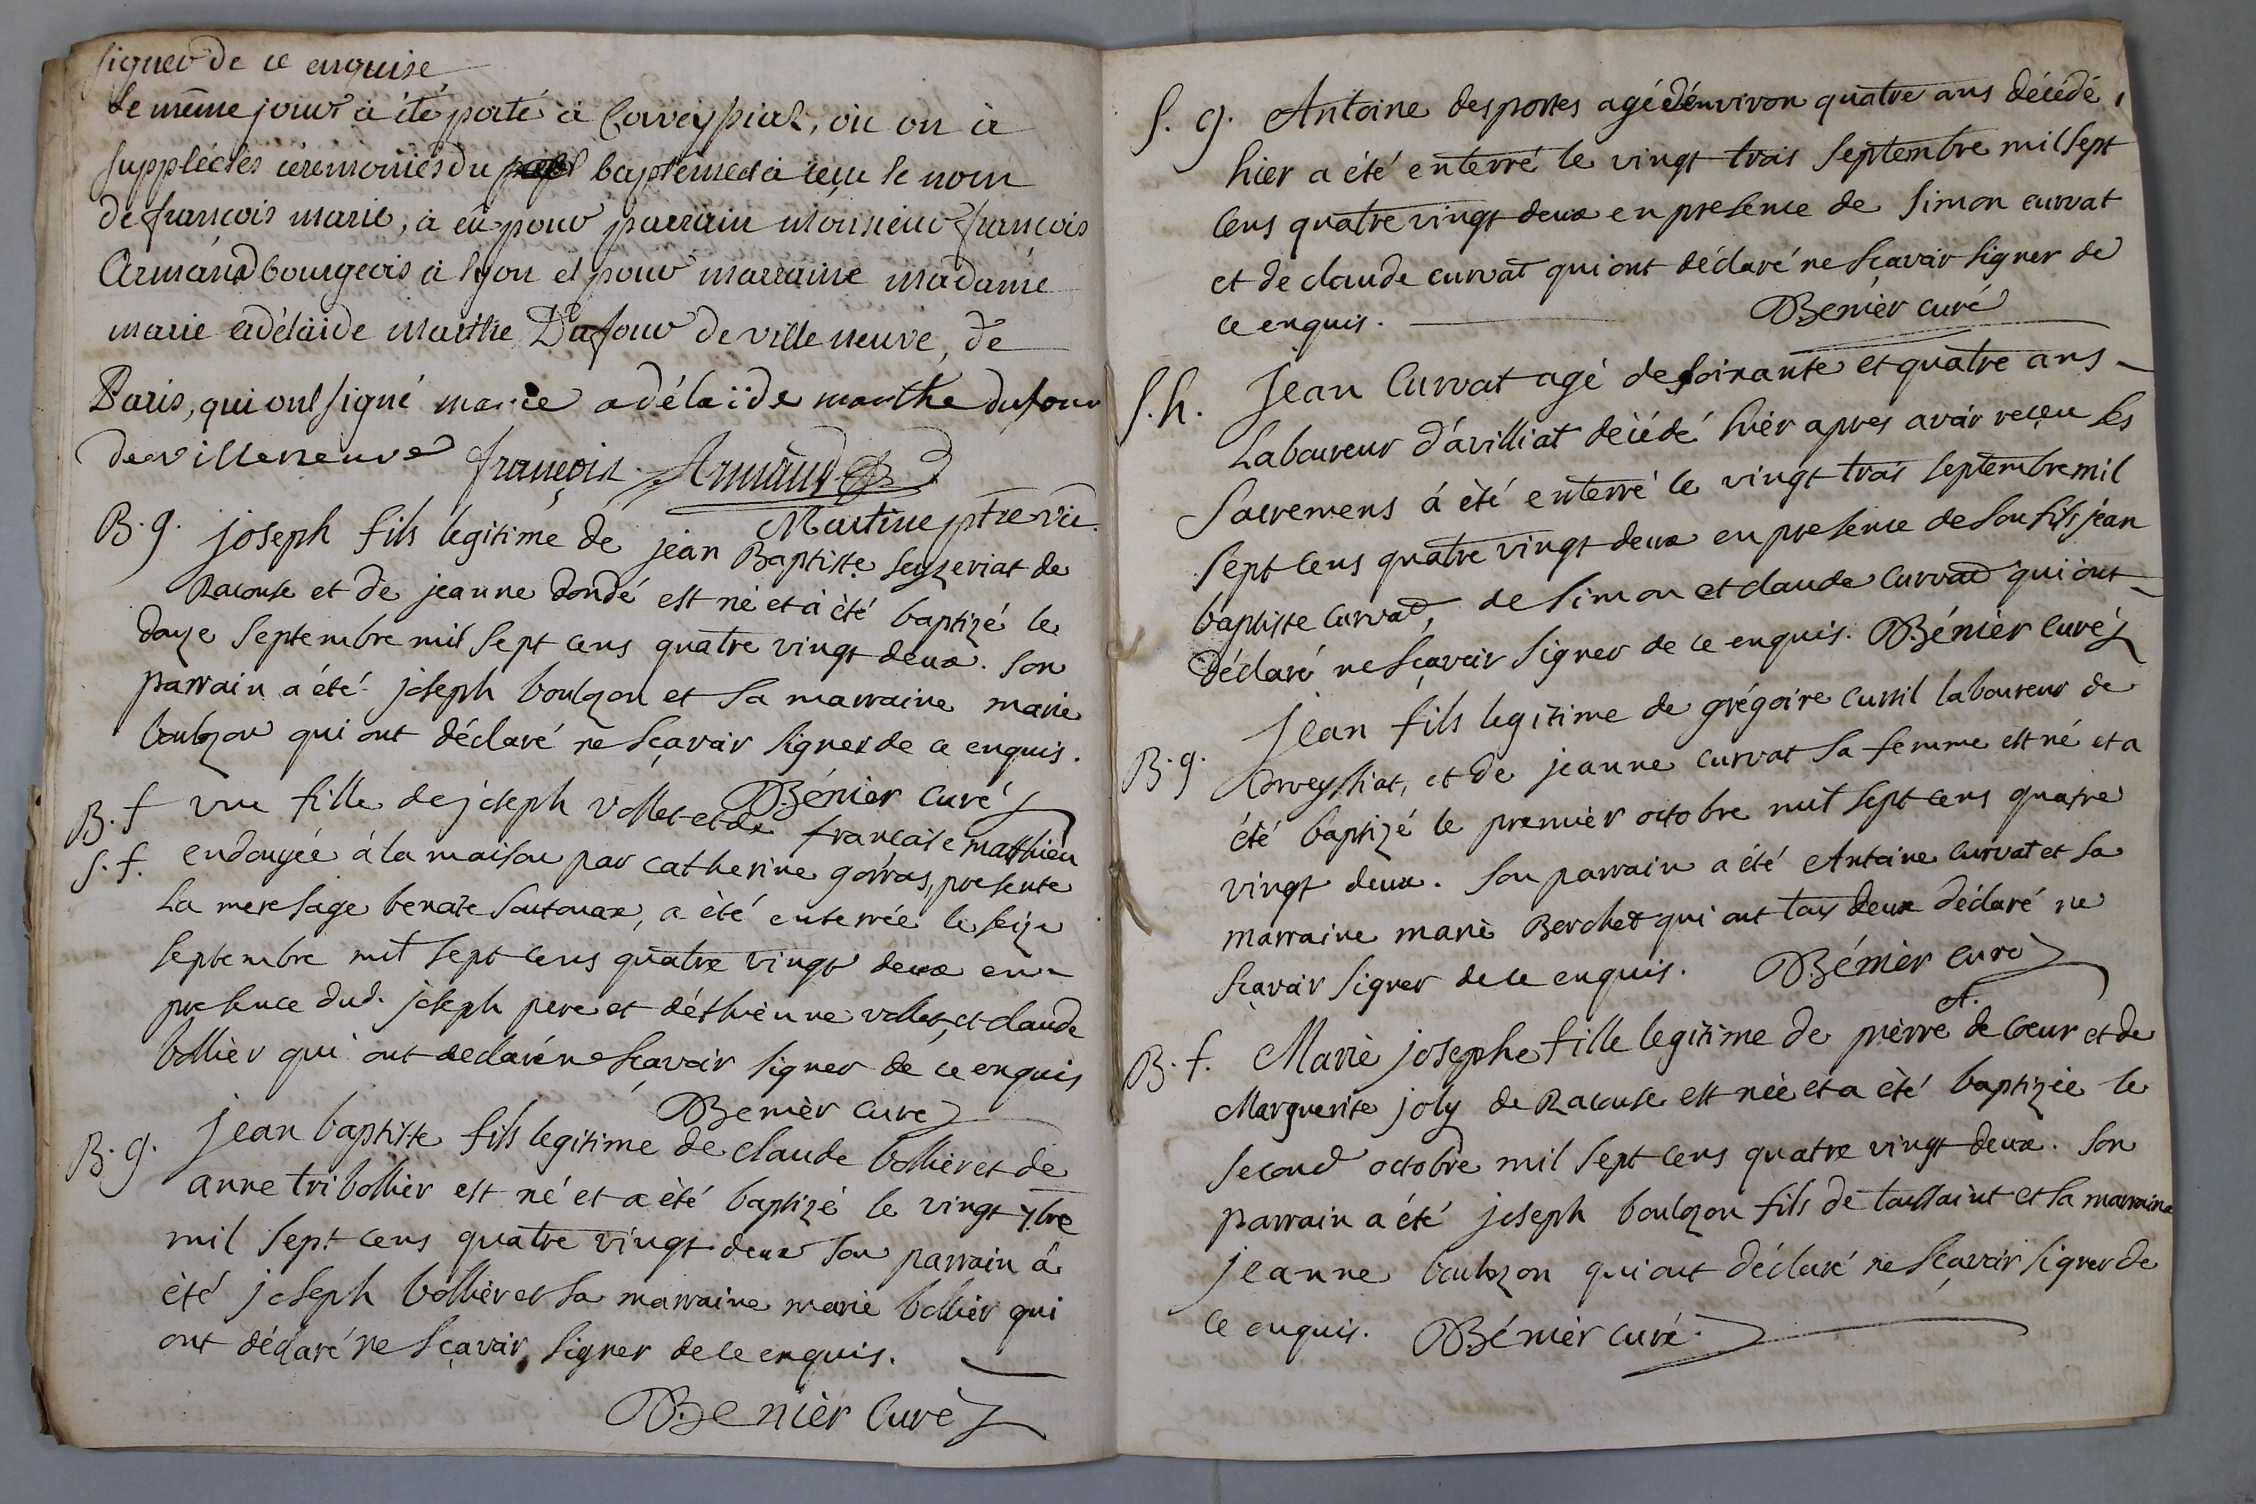 signer de ce enquise
Le même jour à été porté à Corveyssiat, où on à
supplée les ceremonies du baptême et à reçu le nom
de françois marie, à eû pour parrain monsieur françois
Armand bourgeois à lyon et pour marraine madame
marie adélaide marthe Dufour de ville neuve, de
Paris, qui ont signé marie adélaïde marthe dufour
de villeneuve françois Armand
Martine ptre vic.
B. g. joseph fils legitime de jean Baptiste seyzeriat de
Racouse et de jeanne dondé est né et à été baptizé le
douze septembre mil sept cens quatre vingt deux. son
parrain a été joseph boulzon et sa marraine marie
boulzon qui ont déclaré ne sçavoir signer de ce enquis.
Bénier curé
B. f une fille de joseph vollet et de francoise matthieu
S. f. endoyée à la maison par catherine gorras, presente
la mere sage benoite soutoux, a été enterrée le seize
septembre mil sept cens quatre vingt deux en
presence dud. joseph pere et d'éthiènne vollet, et claude
bollièr qui ont declaré ne sçavoir signer de ce enquis
Benièr curé
B. g. jean baptiste fils legitime de claude bollièr et de
anne tribollièr est né et a été baptizé le vingt 7bre
mil sept cens quatre vingt deux son parrain à
été joseph bollièr et sa marraine marie bollièr qui
ont déclaré ne sçavoir signer de ce enquis.
Benièr curé
S. g. Antoine desportes agé d'énviron quatre ans décédé
hier a été enterré le vingt trois septembre mil sept
cens quatre vingt deux en presence de simon curvat
et de claude curvat qui ont déclaré ne sçavoir signer de
ce enquis. Benièr curé
S. h. Jean Curvat agé de soixante et quatre ans
laboureur d'avilliat décédé hièr apres avoir reçeu les
sacremens á été enterré le vingt trois septembre mil
sept cens quatre vingt deux en presence de son fils jean
baptiste curvat, de simon et claude curvat qui ont
déclaré ne sçavoir signer de ce enquis. Bénièr curé
B. g. Jean fils legitime de grégoire cussil laboureur de
Corveyssiat, et de jeanne curvat sa femme est né et a
été baptizé le premièr octobre mil sept cens quatre
vingt deux. son parrain a été Antoine curvat et sa
marraine marie Berchet qui ont tous deux déclaré ne
sçavoir signer de ce enquis. Bénièr curé
B. f. Marie josephe fille legitime de pièrre de coeur et de
Marguerite joly de Racouse est née et a été baptizée le
second octobre mil sept cens quatre vingt deux. son
parrain a été joseph boulzon fils de toussaint et sa marraine
jeanne boulzon qui ont déclaré ne sçavoir signer de
ce enquis. Bénièr curé.